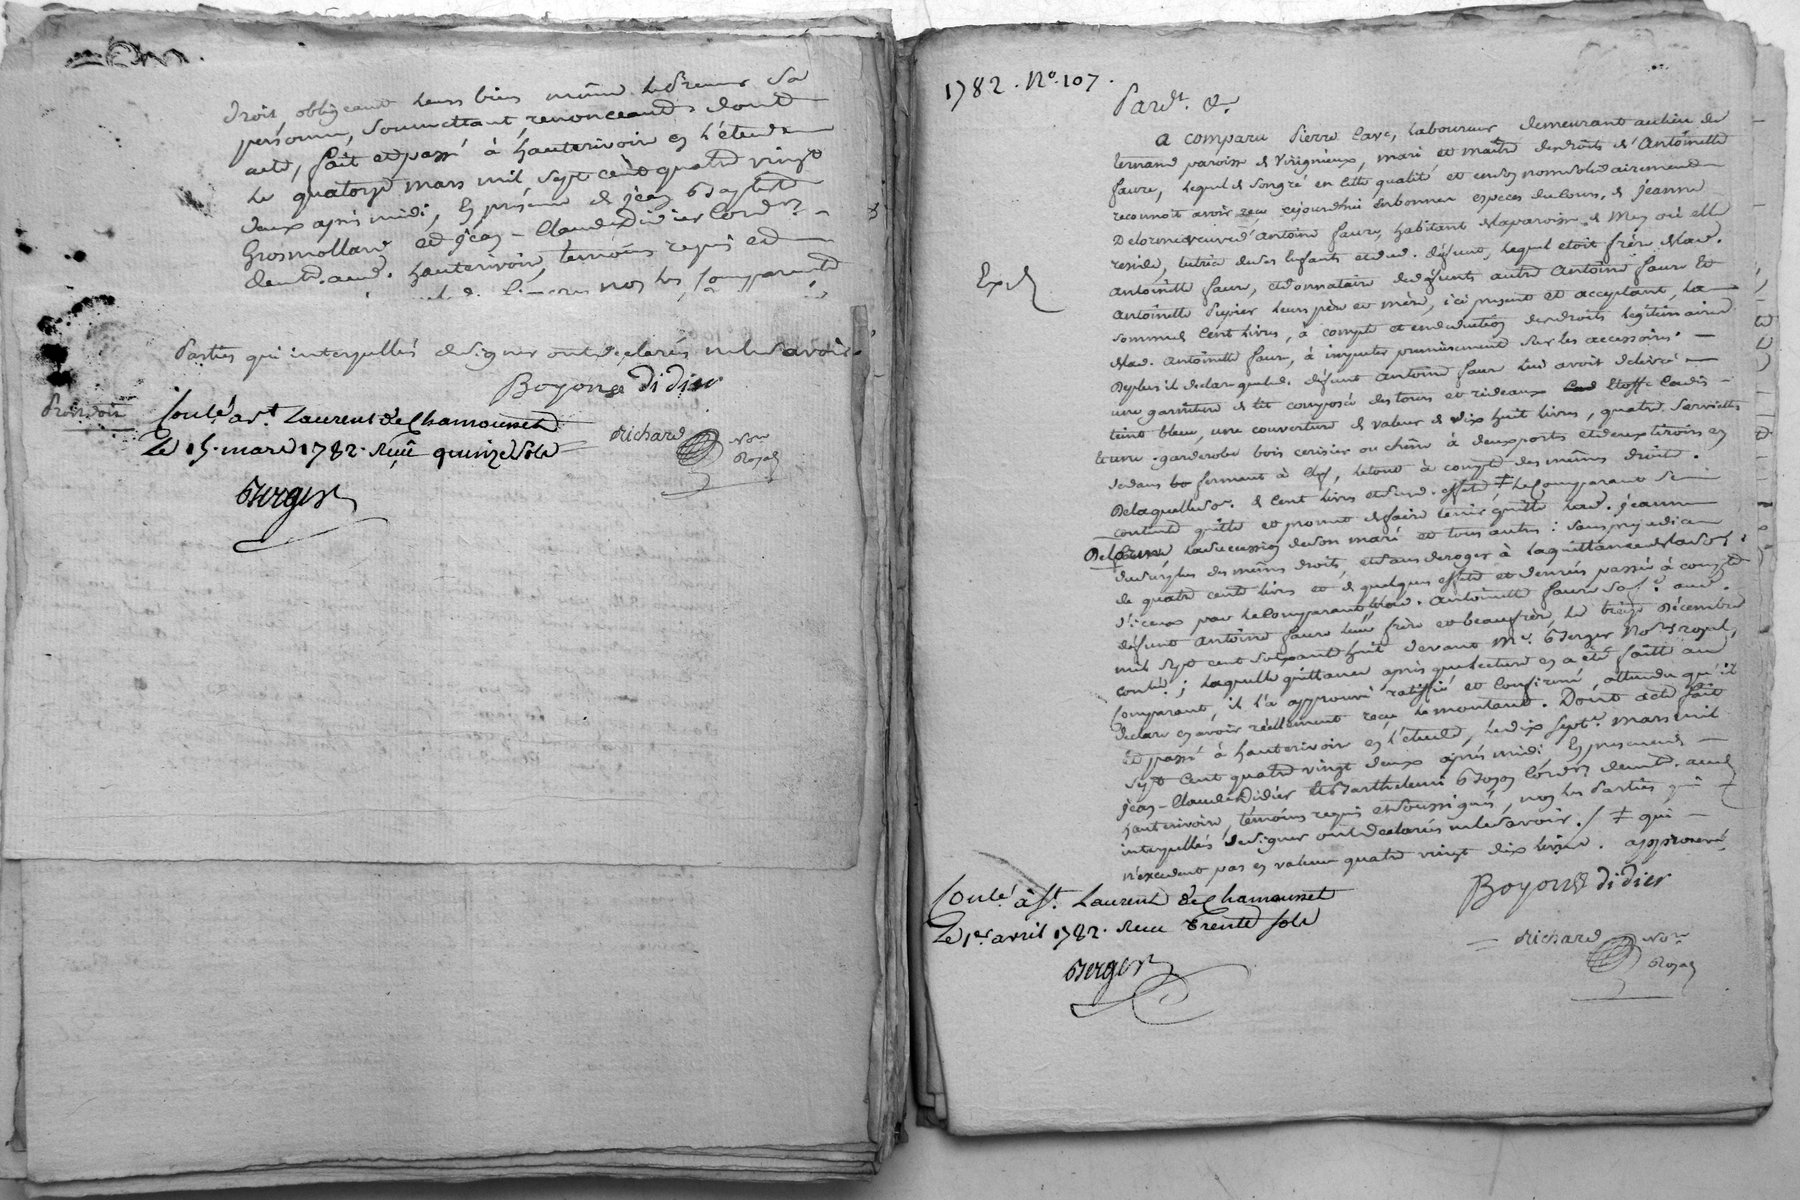 droit, obligeant leurs biens même le preneur sa
personne, soumettant, renonceant dont
acte, fait et passé à hauterivoir en l'étude
le quatorze mars mil sept cent quatre vingt
deux après midi, en présence de jean Baptiste
Grosmollard et jean-Claude Didier Cordrs
demt. aud. hauterivoir, témoins requis et
non les comparants
Parties qui interpellés de signer ont déclarés ne le savoir.
Boyon Didier
Conlé. a St. Laurent de Chamousset
Le 15. mars 1782. Reçu quinze Sols
Berger
Richard Nore
Royal
1782. No. 107.
Pardt. &.
a comparu Pierre Cave, laboureur demeurant au lieu de
paroisse de Virignieux, mari et maître des droits d'Antoinette
faure, lequel de son gré en cette qualité et en son nom solidairement
reconnoit avoir reçu cejourdhui en bonnes espèces du cours, de jeanne
Delorme veuve d'Antoine faure, habitant de la paroisse de Meys où elle
reside, tutrice de ses enfants et dud. défunt, lequel etoit frère de lad.
antoinette faure, et donnataire de défunts autre Antoine faure et
Antoinette leurs père et mère, ici présent et acceptant, la
somme de Cent livres, à compte et en déduction des droits légitimaires
de lad. Antoinette faure, à imputer premièrement sur les accessoires.
De plus il déclare que led. défunt antoine faure lui avoit délivré
une garniture de lit composée des tours et rideaux étoffe Cadis
teint bleu, une couverture de valeur de dix huit livres, quatre serviettes
et une garderobe bois cerisier ou chêne à deux portes et deux tiroirs en
dedans fermant à clef, le tout à compte des mêmes droits.
De laquelle so. de Cent livres et dud. effets ≠ le Comparant se
contente quitte et promet de faire tenir quitte lad. jeanne
Delorme la succession de son mari et tous autres: sans préjudice
du surplus des mêmes droits, et sans deroger à la quittance de la so.
de quatre cents livres et de quelques effets et denrées passée à compte
d'iceux par le Comparant et lad. Antoinette faure sa fe. aud.
défunt Antoine faure leur frère et beaufrère, le treize Décembre
mil sept cent soixante huit devant Me. Berger Nore royal,
conlé.; laquelle quittance après que lecture en a été faitte au
Comparant, il l'a approuvé ratiffié et Confirmé, attendu qu'il
déclare en avoir réellement reçu le montant. Dont acte fait
et passé à hauterivoir en l'étude, le dix sept. mars mil
sept Cent quatre vingt deux après midi En présence de
jean-Claude Didier et Barthelemi Boyon Cordrs demt. aud.
hauterivoir, témoins requis et soussignés, non les Parties qui
interpellés de signer ont déclarés ne le savoir. / ≠ qui
n'excedent pas en valeur quatre vingt dix livres. approuvé
Boyon Didier
Conlé. à St. Laurent de Chamousset
Le 1er avril 1782. Reçu trente sols
Berger
Richard Nore
Royal